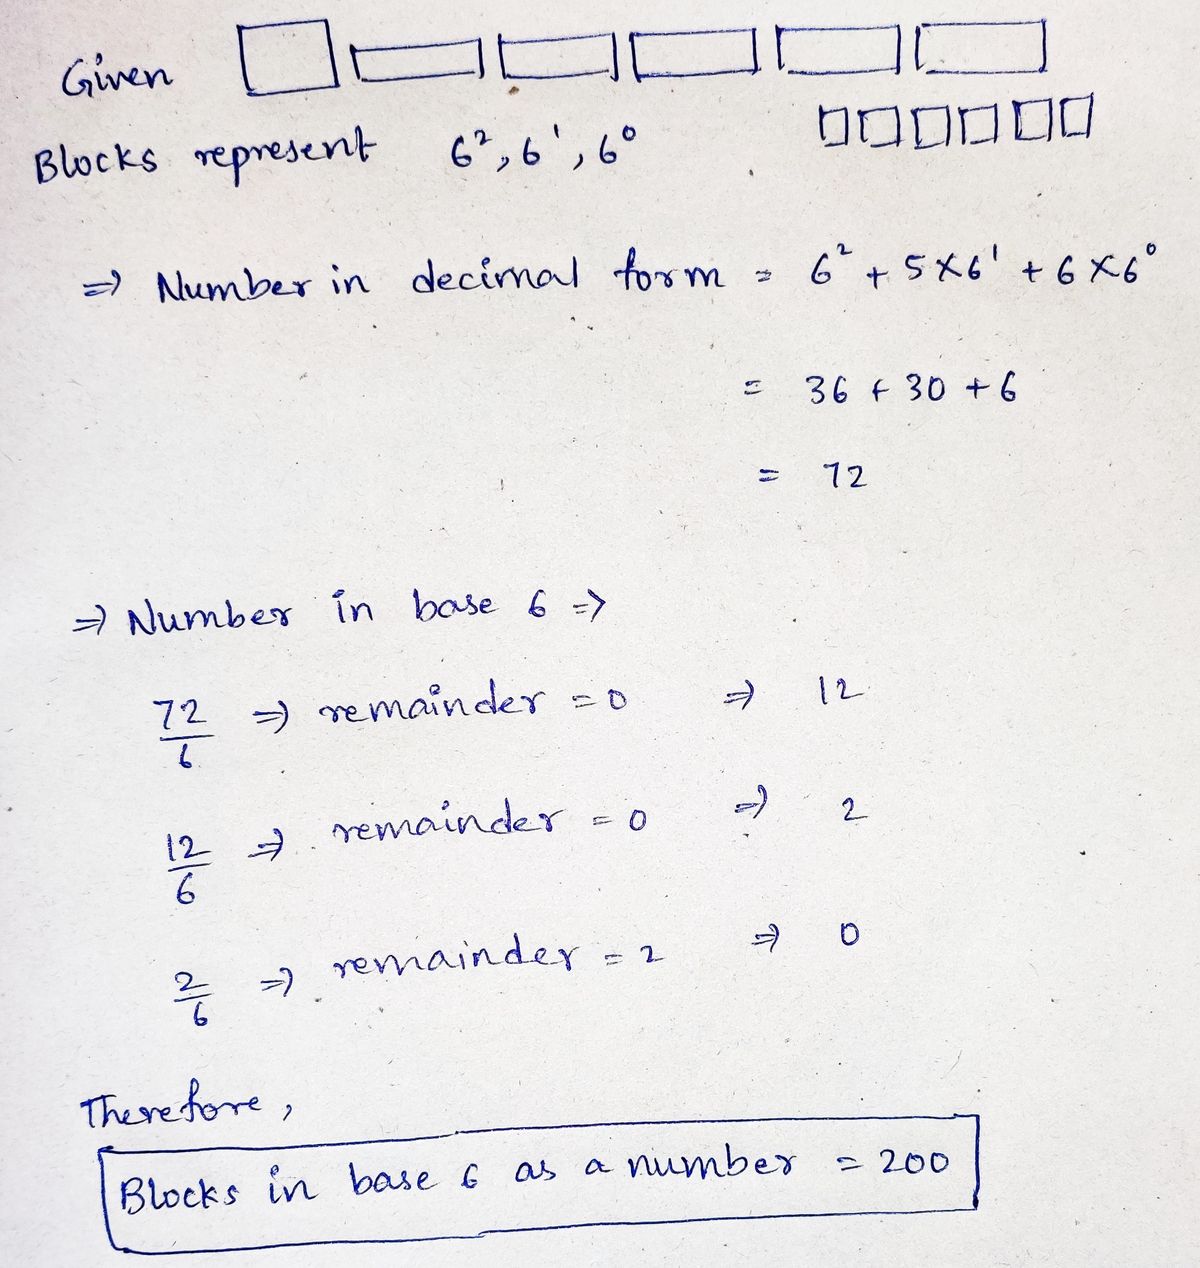 Given
Blocks represent 6², 6¹, 6⁰
⇒ Number in decimal form = 6² + 5×6¹ + 6×6⁰
= 36 + 30 + 6
= 72
⇒ Number in base 6 ⇒
72/6 ⇒ remainder = 0 ⇒ 12
12/6 ⇒ remainder = 0 ⇒ 2
2/6 ⇒ remainder = 2 ⇒ 0
Therefore,
Blocks in base 6 as a number = 200